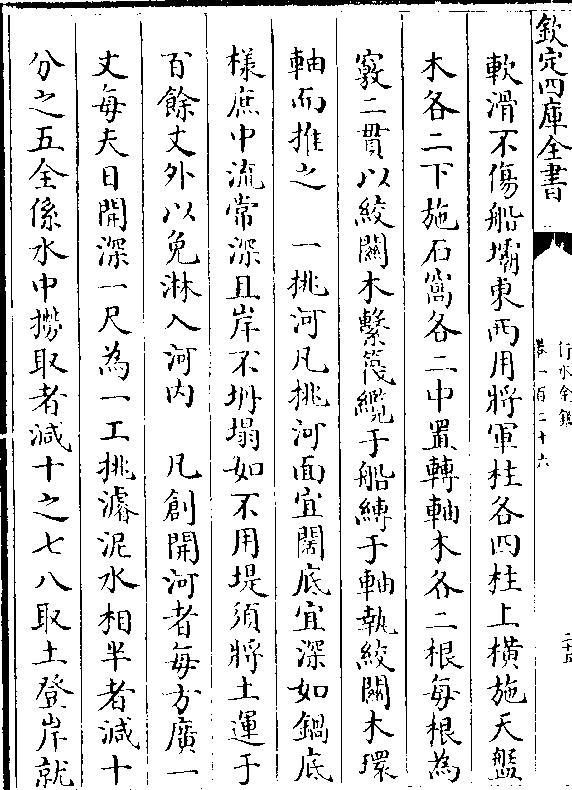 欽定四庫全書
行水金鑑
卷一百二十六
二十五
軟滑不傷船壩東西用將軍柱各四柱上橫施天盤
木各二下施石窩各二中置轉軸木各二根每根為
竅二貫以絞關木繫篾纜于船縛于軸執絞關木環
軸而推之　一挑河凡挑河面宜闊底宜深如鍋底
樣庶中流常深且岸不坍塌如不用堤須將土運于
百餘丈外以免淋入河内　凡創開河者每方廣一
丈每夫日開深一尺為一工挑濬泥水相半者減十
分之五全係水中撈取者減十之七八取土登岸就